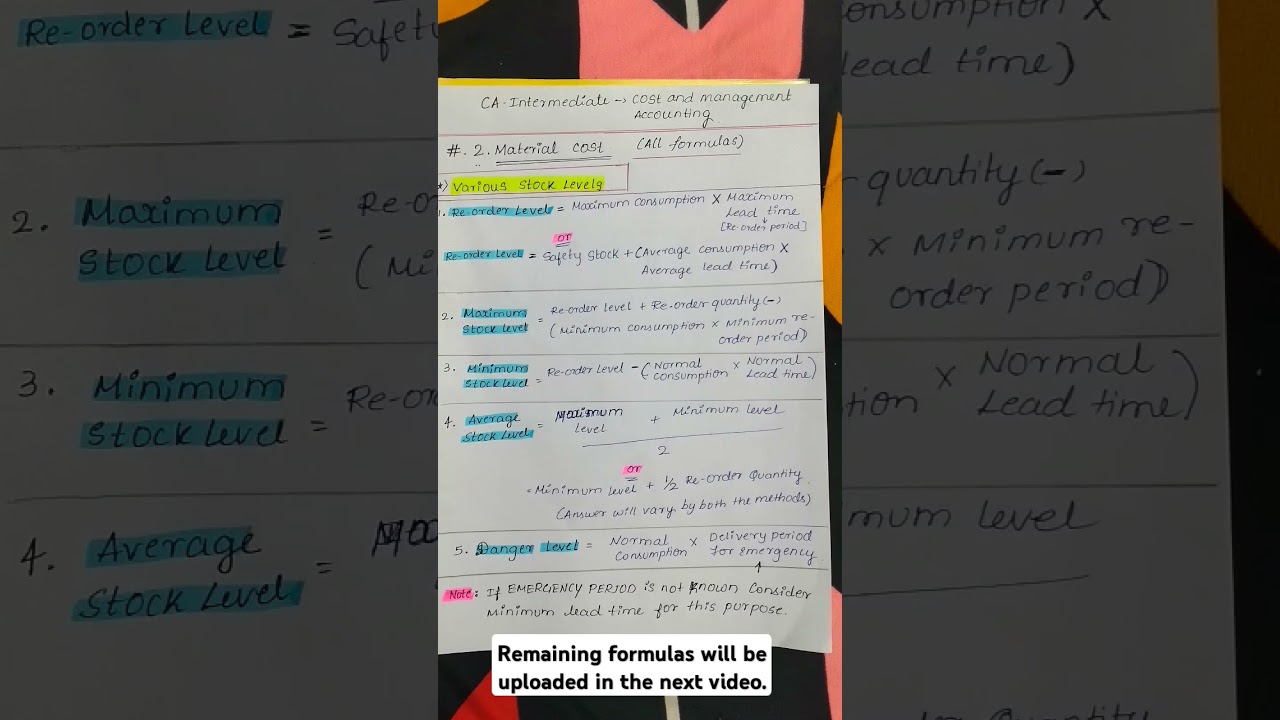 CA-Intermediate → Cost and management
Accounting
#. 2. Material cost (All formulas)
*) Various Stock Levels
1. Re order Level = Maximum consumption X Maximum
Lead time
[Re-order period]
or
Re-order Level = Safety Stock + (Average consumption X
Average lead time)
2. Maximum Stock level = Re-order level + Re-order quantity (-)
(Minimum consumption x Minimum re-
order period)
3. Minimum Stock level = Re-order Level - (Normal consumption x Normal Lead time)
4. Average Stock Level = Maximum level + Minimum level
2
or
= Minimum level + 1/2 Re-order Quantity
(Answer will vary by both the methods)
5. Danger level = Normal Consumption x Delivery period for emergency
↑
Note: If EMERGENCY PERIOD is not known consider
minimum lead time for this purpose.
Remaining formulas will be
uploaded in the next video.
Re-order Level = Safety
2. Maximum
Stock level =
Re-o
(Mi
3. Minimum
Stock level =
Re-or
4. Average
Stock Level =
onsumption X
lead time)
quantity (-)
x Minimum re-
order period)
tion x Normal
Lead time)
mum level
Quantity